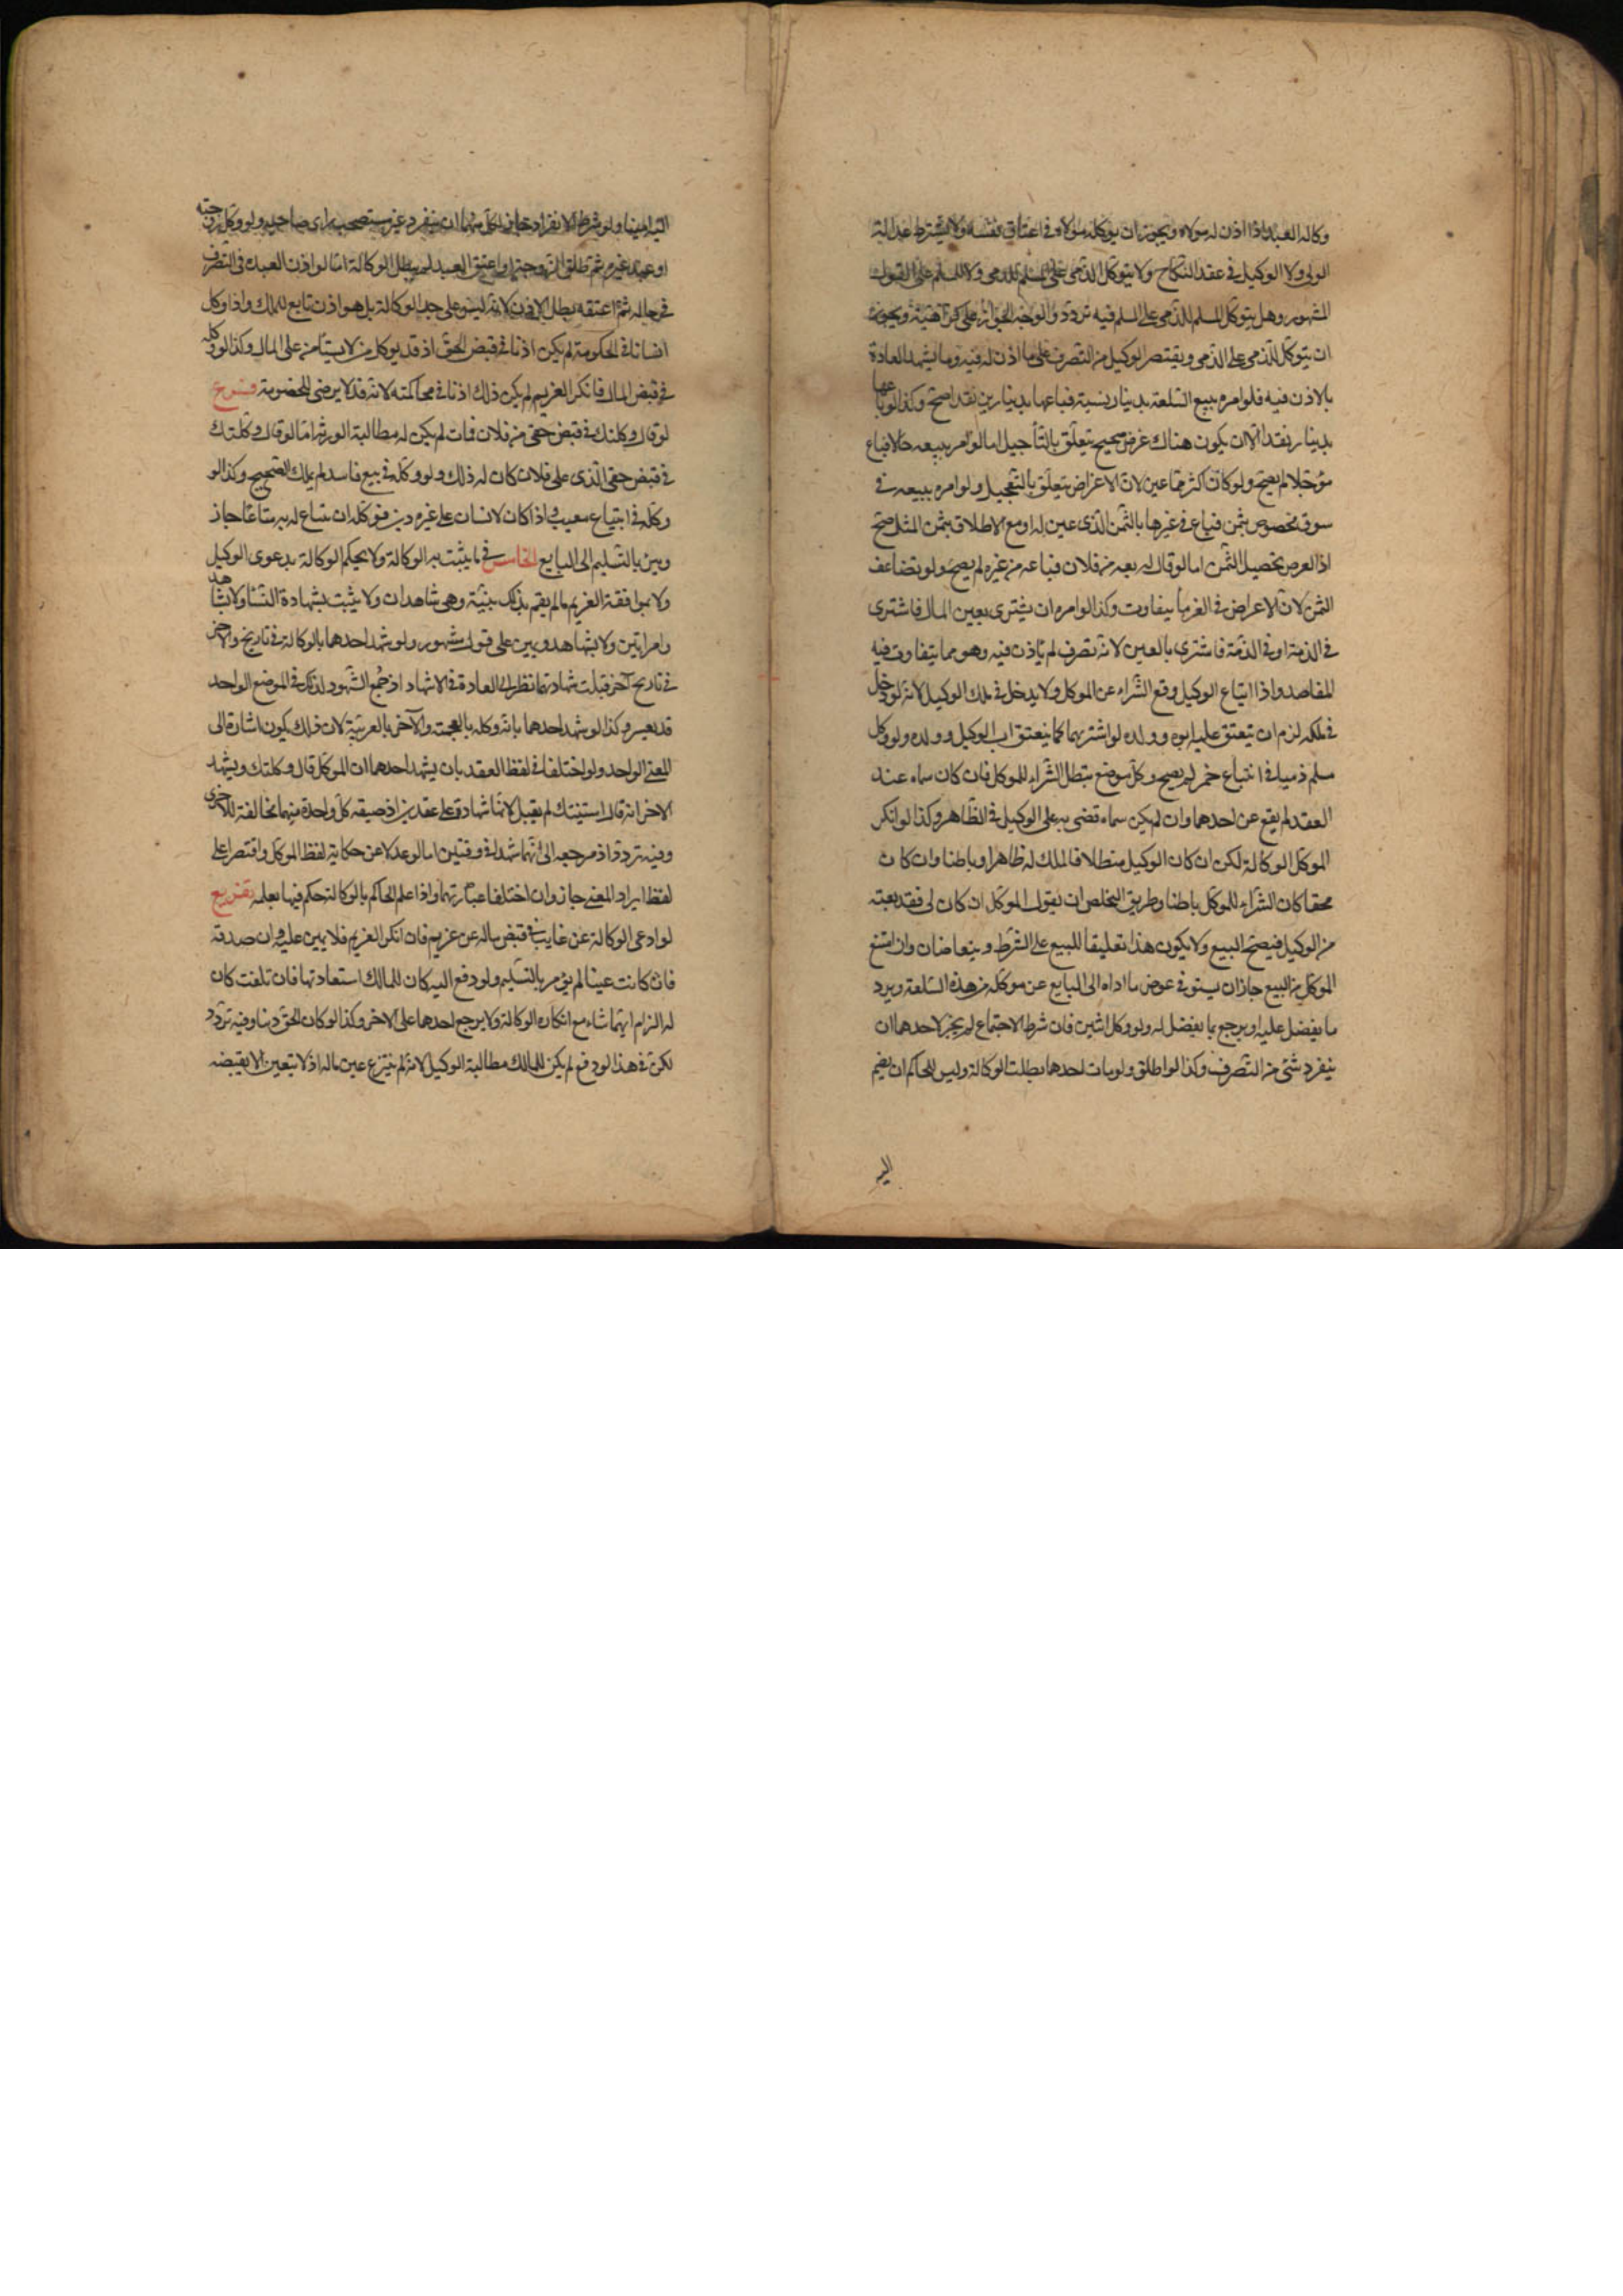 وكالة العبد اذا اذن له مولاه ويجوز ان يوكله مولاه في اعتاق نفسه ولا يشترط عدالة
الولي ولا الوكيل في عقد النكاح ولا يتوكل الذمي على المسلم للذمي ولا للمسلم على القول
المشهور وهل يتوكل المسلم للذمي على المسلم فيه تردد والوجه الجواز على كراهية ويجوز
ان يتوكل الذمي على الذمي ويقتصر الوكيل من التصرف على ما اذن له فيه وما يشهد العادة
بالاذن فيه فلو امره ببيع السلعة بدينار نسية فباعها بدينارين نقدا صح وكذا لو باعها
بدينار نقدا الا ان يكون هناك غرض صحيح يتعلق بالتأجيل اما لو امر ببيعه حالا فباع
مؤجلا لم يصح ولو كان اكثر مما عين لان الاغراض يتعلق بالتعجيل ولو امره ببيعه في
سوق مخصوص بثمن فباع في غيرها بالثمن الذي عين له او مع الاطلاق بثمن المثل صح
اذ الغرض تحصيل الثمن اما لو قال له بعه من فلان فباعه من غيره لم يصح ولو تضاعف
الثمن لان الاعراض في الغرماء يتفاوت وكذا لو امره ان يشترى بعين المال فاشترى
في الذمة او في الذمة فاشترى بالعين لانه تصرف لم يأذن فيه وهو مما يتفاوت فيه
المقاصد واذا ابتاع الوكيل وقع الشراء عن الموكل ولا يدخل في ملك الوكيل لانه لو دخل
في ملكه لزم ان يعتق عليه ابوه وولده لو اشتريهما كما ينعتق اب الوكيل وولده ولو وكل
مسلم ذميا في ابتياع خمر لم يصح وكل موضع يبطل الشراء للموكل فان كان سماه عند
العقد لم يقع عن احدهما وان لم يكن سماه قضى به على الوكيل في الظاهر وكذا لو انكر
الموكل الوكالة لكن ان كان الوكيل مبطلا فالملك له ظاهرا وباطنا وان كان
محقا كان الشراء للموكل باطنا وطريق التخلص ان يقول الموكل ان كان لى فقد بعته
من الوكيل فيصح البيع ولا يكون هذا تعليقا للبيع على الشرط ويتعاضان وان امتنع
الموكل من البيع جاز ان يستوفى عوض ما اداه الى البايع عن موكله من هذه السلعة ويرد
ما يفضل عليه او يرجع بما يفضل له ولو وكل اثنين فان شرط الاجتماع لم يجز لاحدهما ان
ينفرد بشئ من التصرف وكذا لو اطلق ولو مات احدهما بطلت الوكالة وليس للحاكم ان يضم
اليه
اليه امينا ولو شرط الانفراد جاز لكل منهما ان ينفرد غير مستصحب رأى صاحبه ولو وكل زوجته
او عبد غيره ثم طلق الزوجة او اعتق العبد لم يبطل الوكالة اما لو اذن العبد في التصرف
في ماله ثم اعتقه بطل الاذن لانه ليس على حد الوكالة بل هو اذن تابع للملك واذا وكل
انسانا في الحكومة لم يكن اذنا في قبض الحق اذ قد يوكل من لا يستأمن على المال وكذا لو وكله
في قبض المال فانكر الغريم لم يكن ذلك اذنا في محاكمته لانه قد لا يرضى للخصومة فروع
لو قال وكلتك في قبض حقي من فلان فمات لم يكن له مطالبة الورثة اما لو قال وكلتك
في قبض حقي الذي على فلان كان له ذلك ولو وكله في بيع فاسد لم يملك الصحيح وكذا لو
وكله في ابتياع معيب واذا كان لانسان على غيره دين فوكله ان يبتاع له به متاعا جاز
ويبرئ بالتسليم الى البايع الخامس فيما يثبت به الوكالة ولا يحكم الوكالة بدعوى الوكيل
ولا بموافقة الغريم ما لم يقم بذلك بينة وهي شاهدان ولا يثبت بشهادة النساء ولا بشاهد
وامراتين ولا بشاهد ويمين على قول مشهور ولو شهد احدهما بالوكالة في تاريخ والاخر
في تاريخ آخر قبلت شهادتهما نظرا الى العادة في الاشهاد اذ جمع الشهود لذلك في الموضع الواحد
قد يعسر وكذا لو شهد احدهما بانه وكله بالعجمية والآخر بالعربية لان ذلك يكون اشارة الى
المعنى الواحد ولو اختلفا في لفظ العقد بان يشهد احدهما ان الموكل قال وكلتك ويشهد
الاخر انه قال استنبتك لم يقبل لانها شهادة على عقدين اذ صيغة كل واحدة منهما مخالفة للاخرى
وفيه تردد اذ مرجعه الى انهما شهدا في وقتين اما لو عدلا عن حكاية لفظ الموكل واقتصرا على
لفظ ايراد المعنى جاز وان اختلفا عبارتهما واذا علم الحاكم بالوكالة حكم فيها بعلمه تفريع
لو ادعى الوكالة عن غايب في قبض ماله عن غريم فان انكر الغريم فلا يمين عليه وان صدقه
فان كانت عينا لم يؤمر بالتسليم ولو دفع اليه كان للمالك استعادتها فان تلفت كان
له الزام ايهما شاء مع انكاره الوكالة ولا يرجع احدهما على الاخر وكذا لو كان الحق دينا وفيه تردد
لكن في هذا لو دفع لم يكن للمالك مطالبة الوكيل لانه لم ينتزع عين ماله اذ لا يتعين الا بقبضه